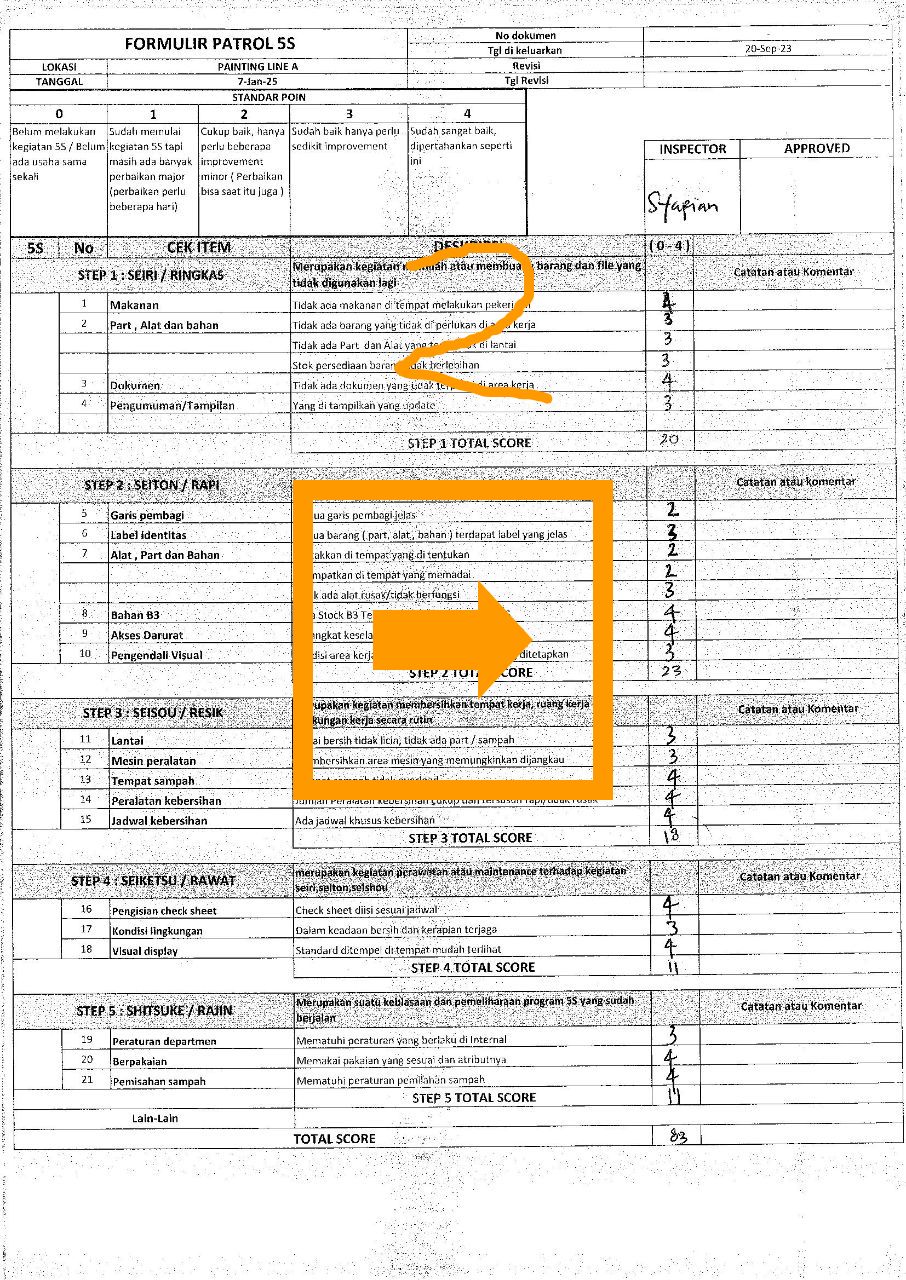 FORMULIR PATROL 5S
No dokumen -
Tgl di keluarkan 20-Sep-23
LOKASI PAINTING LINE A Revisi
TANGGAL 7-Jan-25 Tgl Revisi
STANDAR POIN
0 1 2 3 4
Belum melakukan kegiatan 5S / Belum ada usaha sama sekali
Sudah memulai kegiatan 5S tapi masih ada banyak perbaikan major (perbaikan perlu beberapa hari)
Cukup baik, hanya perlu beberapa improvement minor ( Perbaikan bisa saat itu juga )
Sudah baik hanya perlu sedikit improvement
Sudah sangat baik, dipertahankan seperti ini
INSPECTOR APPROVED
5S No CEK ITEM ( 0 - 4 )
2
STEP 1 : SEIRI / RINGKAS Merupakan kegiatan atau membua barang dan file yang Catatan atau Komentar
tidak digunakan lagi
1 Makanan Tidak ada makanan di tempat melakukan 4
2 Part , Alat dan bahan Tidak ada barang yang tidak di perlukan di kerja 3
Tidak ada Part dan Alat yang di lantai 3
Stok persediaan berlebihan 3
3 Dokumen Tidak ada dokumen yang tidak di area kerja 4
4 Pengumuman/Tampilan Yang di tampilkan yang update 3
STEP 1 TOTAL SCORE 20
STEP 2 : SEITON / RAPI Catatan atau komentar
5 Garis pembagi garis pembagi jelas 2
6 Label identitas barang ( part, alat , bahan ) terdapat label yang jelas 3
7 Alat , Part dan Bahan di tempat yang di tentukan 2
di tempat yang memadai 2
ada alat rusak/tidak berfungsi 3
8 Bahan B3 Stock B3 4
9 Akses Darurat 4
10 Pengendali Visual area ditetapkan 3
STEP 2 SCORE 23
STEP 3 : SEISOU / RESIK kegiatan membersihkan tempat kerja, ruang kerja Catatan atau Komentar
kerja secara rutin
11 Lantai bersih tidak licin, tidak ada part / sampah 3
12 Mesin peralatan area mesin yang memungkinkan dijangkau 3
13 Tempat sampah 4
14 Peralatan kebersihan Jumlah Peralatan kebersihan cukup dan tersusun rapi/tidak rusak 4
15 Jadwal kebersihan Ada jadwal khusus kebersihan 4
STEP 3 TOTAL SCORE 18
STEP 4 : SEIKETSU / RAWAT merupakan kegiatan perawatan atau maintenance terhadap kegiatan Catatan atau Komentar
seiri,seiton,seishou
16 Pengisian check sheet Check sheet diisi sesuai jadwal 4
17 Kondisi lingkungan Dalam keadaan bersih dan kerapian terjaga 3
18 Visual display Standard ditempel di tempat mudah terlihat 4
STEP 4 TOTAL SCORE 11
STEP 5 : SHITSUKE / RAJIN Merupakan suatu kebiasaan dan pemeliharaan program 5S yang sudah Catatan atau Komentar
berjalan
19 Peraturan departmen Mematuhi peraturan yang berlaku di Internal 3
20 Berpakaian Memakai pakaian yang sesuai dan atributnya 4
21 Pemisahan sampah Mematuhi peraturan pemilahan sampah 4
STEP 5 TOTAL SCORE 11
Lain-Lain
TOTAL SCORE 83